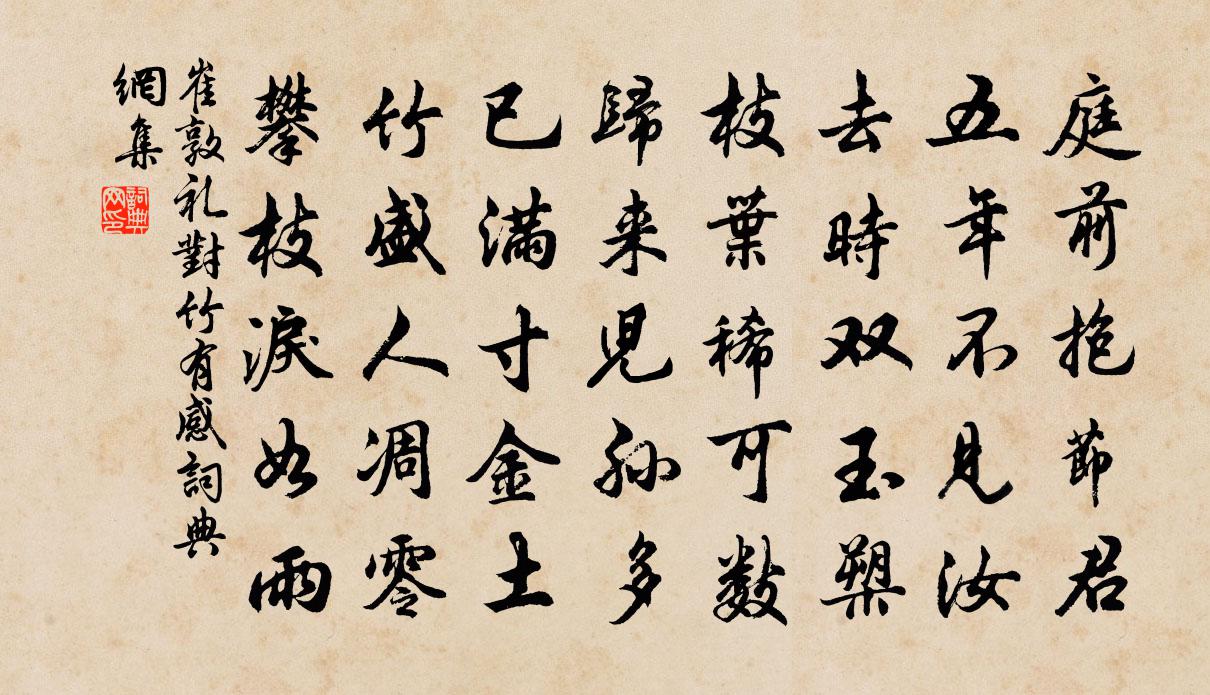 庭前抱節君
五年不見汝
去時双玉槊
枝葉稀可數
歸来兒孫多
已满寸金土
竹盛人凋零
攀枝淚如雨
崔敦礼對竹有感詞典
網集
詞典
网印